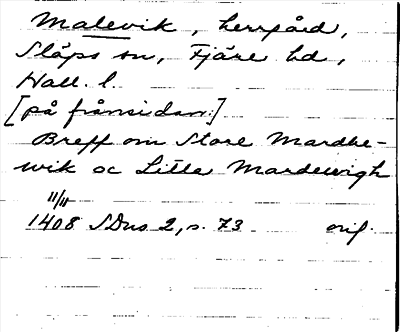 Malevik, herrgård,
Släps sn, Fjäre hd,
Hall. l.
[på frånsidan:]
Breff om Store Mardhe-
wik oc Litle Mardewigh
11/11
1408 SDns 2, s. 73 orig.